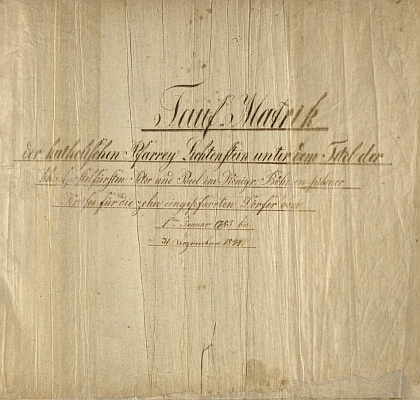 Tauf Matrik
der katholischen Pfarrey Lichtenstein unter dem Titel der
hh. Apostelfürsten Peter und Paul im Königr. Böhmen pilsner
Kreises für die zehn eingepfarrten Dörfer vom
1ten Januar 1785 bis
31. Dezember 1844.